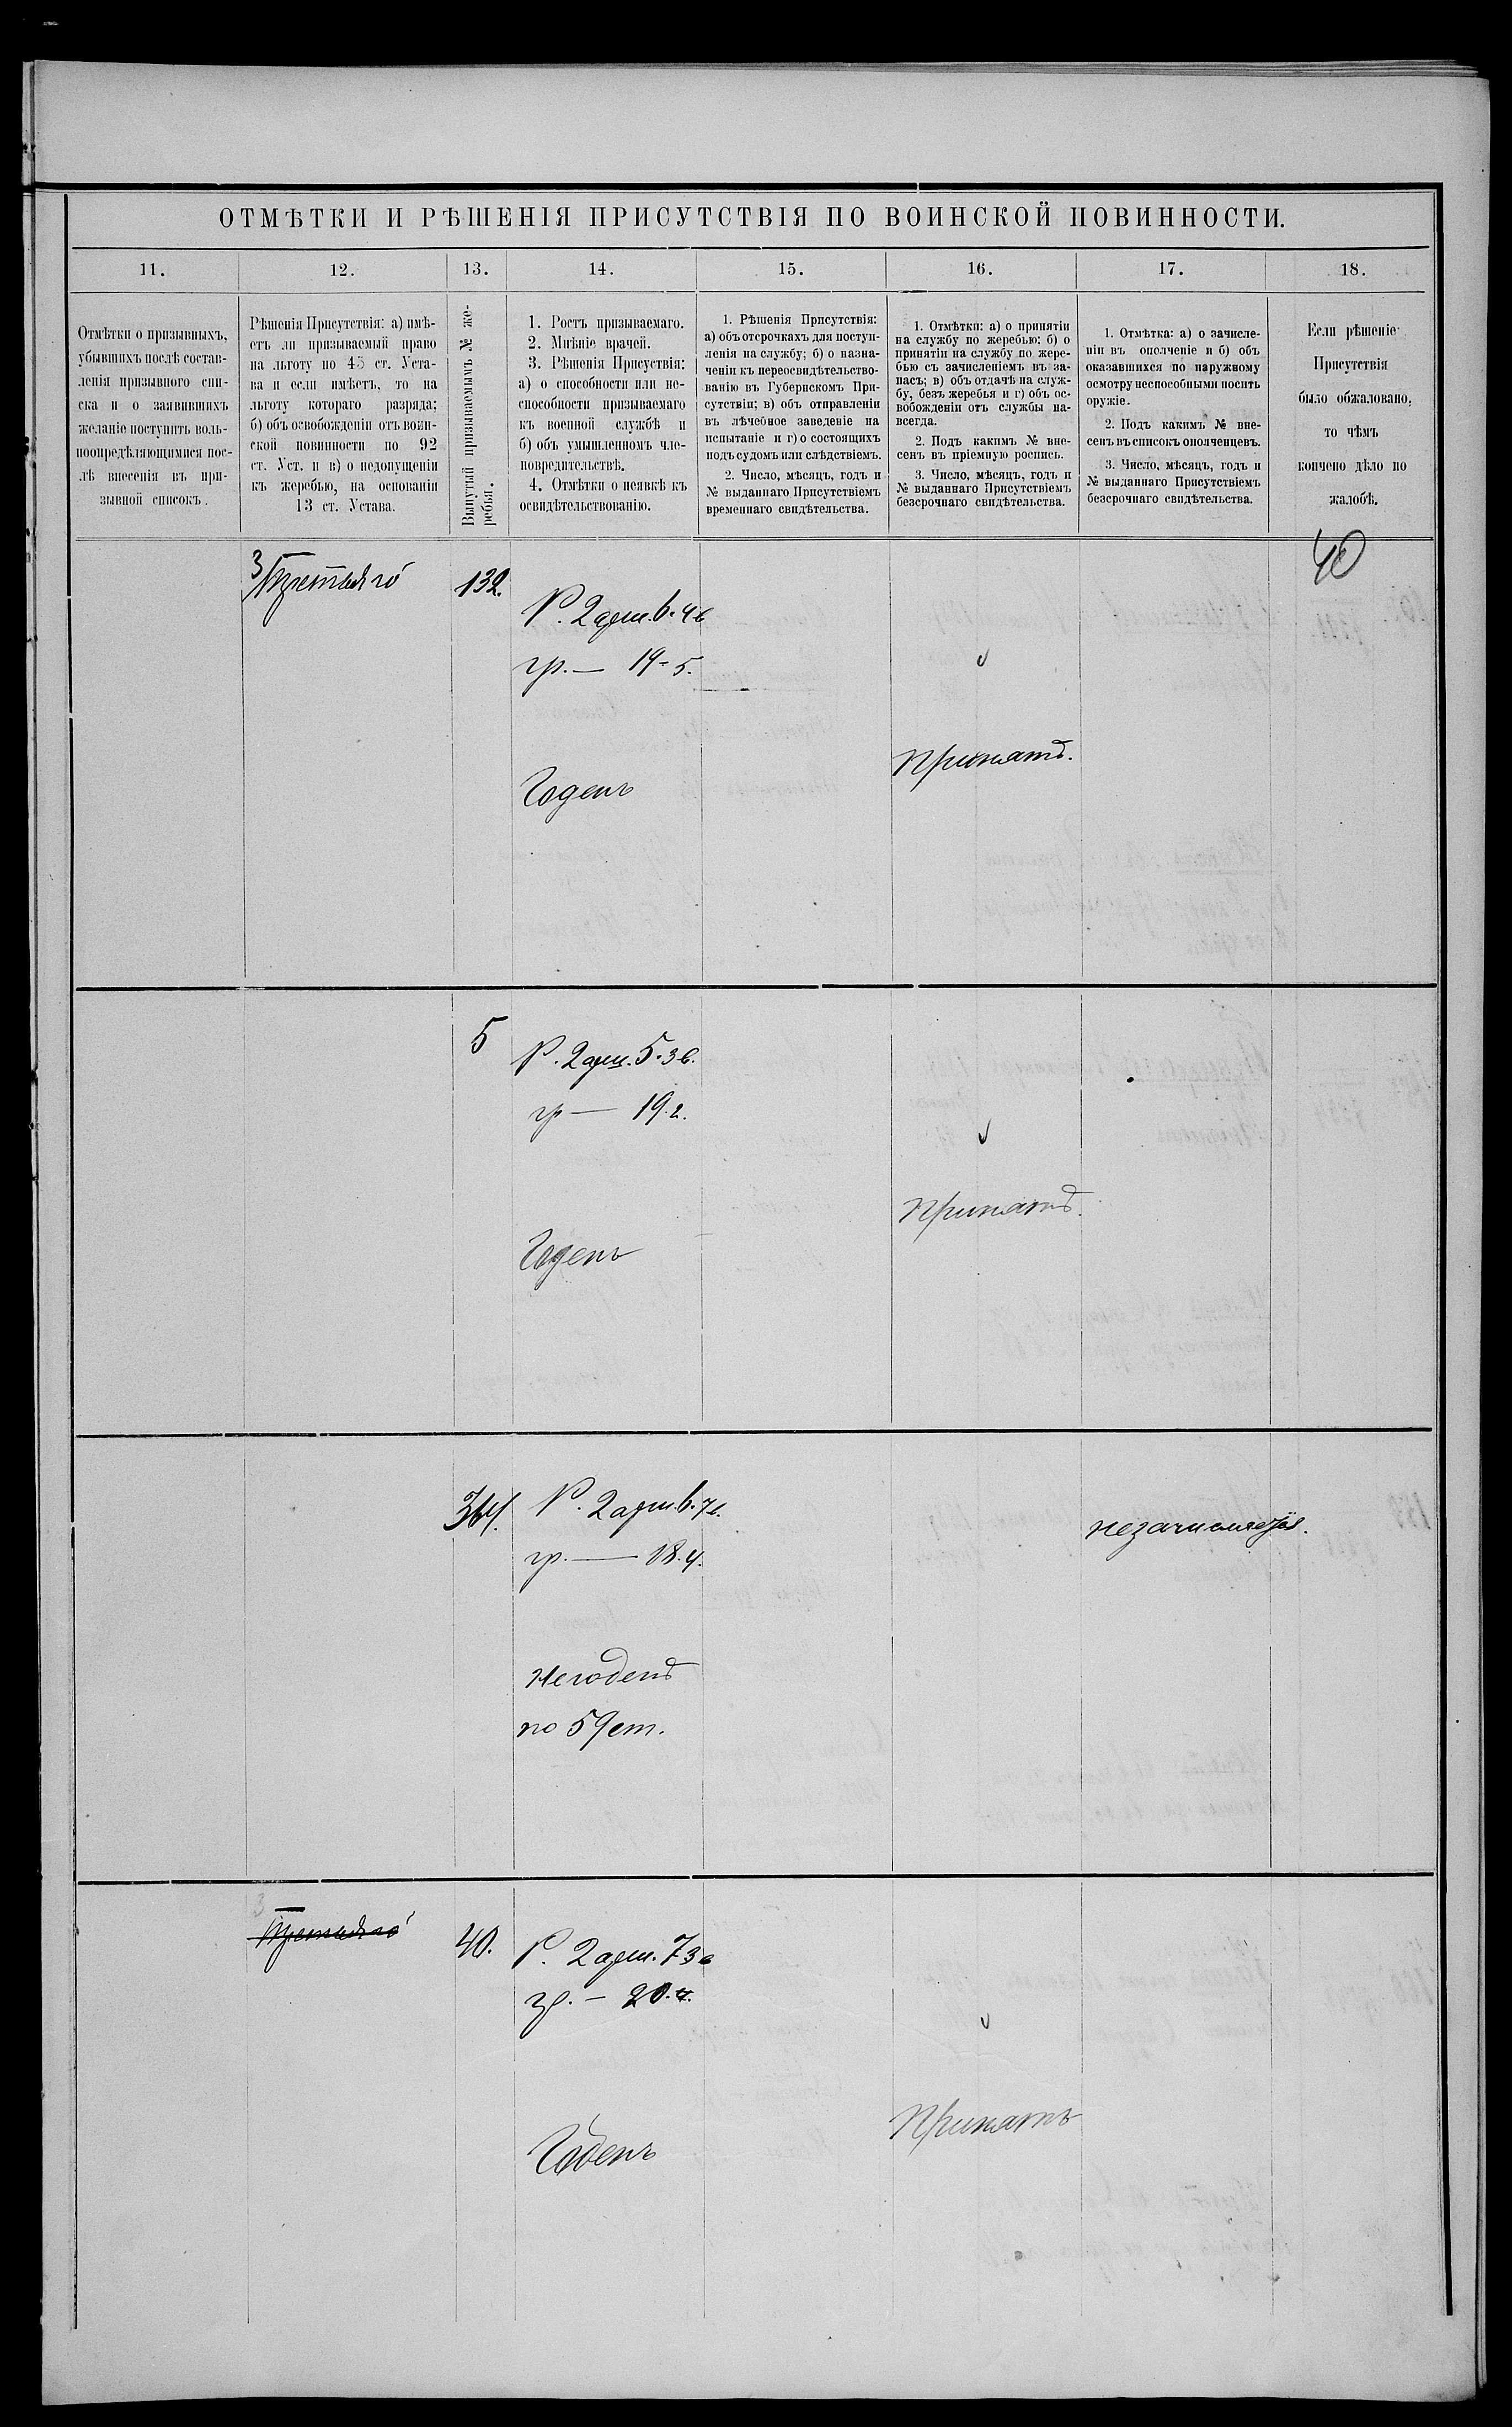 ОТМѢТКИ И РѢШЕНІЯ ПРИСУТСТВІЯ ПО ВОИНСКОЙ ПОВИННОСТИ.
11.
12.
13.
14.
15.
16.
17.
18.
Отмѣтки о призывныхъ,
убывшихъ послѣ состав-
ленія призывного спи-
ска и о заявившихъ
желаніе поступить воль-
ноопредѣляющимися пос-
лѣ внесенія въ при-
зывной списокъ.
Рѣшенія Присутствія: а) имѣ-
етъ ли призываемый право
на льготу по 45 ст. Уста-
ва и если имѣетъ, то на
льготу котораго разряда;
б) объ освобожденіи отъ воин-
ской повинности по 92
ст. Уст. и в) о недопущеніи
къ жеребью, на основаніи
13 ст. Устава.
Вынутый призываемымъ № же-
ребья.
1. Ростъ призываемаго.
2. Мнѣніе врачей.
3. Рѣшенія Присуствія:
а) о способности или не-
способности призываемаго
къ военной службѣ и
б) объ умышленномъ чле-
новредительствѣ.
4. Отмѣтки о неявкѣ къ
освидѣтельствованію.
1. Рѣшенія Присутствія:
а) объ отсрочкахъ для поступ-
ленія на службу; б) о назна-
ченіи къ переосвидѣтельство-
ванію въ Губернскомъ При-
сутствіи; в) объ отправленіи
въ лѣчебное заведеніе на
испытаніе и г) о состоящихъ
подъ судомъ или слѣдствіемъ.
2. Число, мѣсяцъ, годъ и
№ выданнаго Присутствіемъ
временнаго свидѣтельства.
1. Отмѣтки: а) о принятіи
на службу по жеребью; б) о
принятіи на службу по жере-
бью съ зачисленіемъ въ за-
пасъ; в) объ отдачѣ на служ-
бу, безъ жеребья и г) объ ос-
вобожденіи отъ службы на-
всегда.
2. Подъ какимъ № вне-
сенъ въ пріемную роспись.
3. Число, мѣсяцъ, годъ и
№ выданнаго Присутствіемъ
безсрочнаго свидѣтельства.
1. Отмѣтка: а) о зачисле-
ніи въ ополченіе и б) объ
оказавшихся по наружному
осмотру неспособными носить
оружіе.
2. Подъ какимъ № вне-
сенъ въ списокъ ополченцевъ.
3. Число, мѣсяцъ, годъ и
№ выданнаго Присутствіемъ
безсрочнаго свидѣтельства.
Если рѣшеніе
Присутствія
было обжаловано,
то чѣмъ
кончено дѣло по
жалобѣ.
40
3/Третьяго
132.
Р. 2 арш. 6. 4 в
гр. — 19-5.
Годенъ
Принятъ.
5
Р. 2 арш. 5. 3 в.
гр — 19. 2.
Годенъ
Принятъ.
364.
Р. 2 арш. 6. 7 в.
гр. — 18. 4.
Негоденъ
по 59 ст.
незачисляется.
3
Третьяго
40.
Р. 2 арш. 7 3 в
гр. — 20. 4.
Годенъ
Принятъ